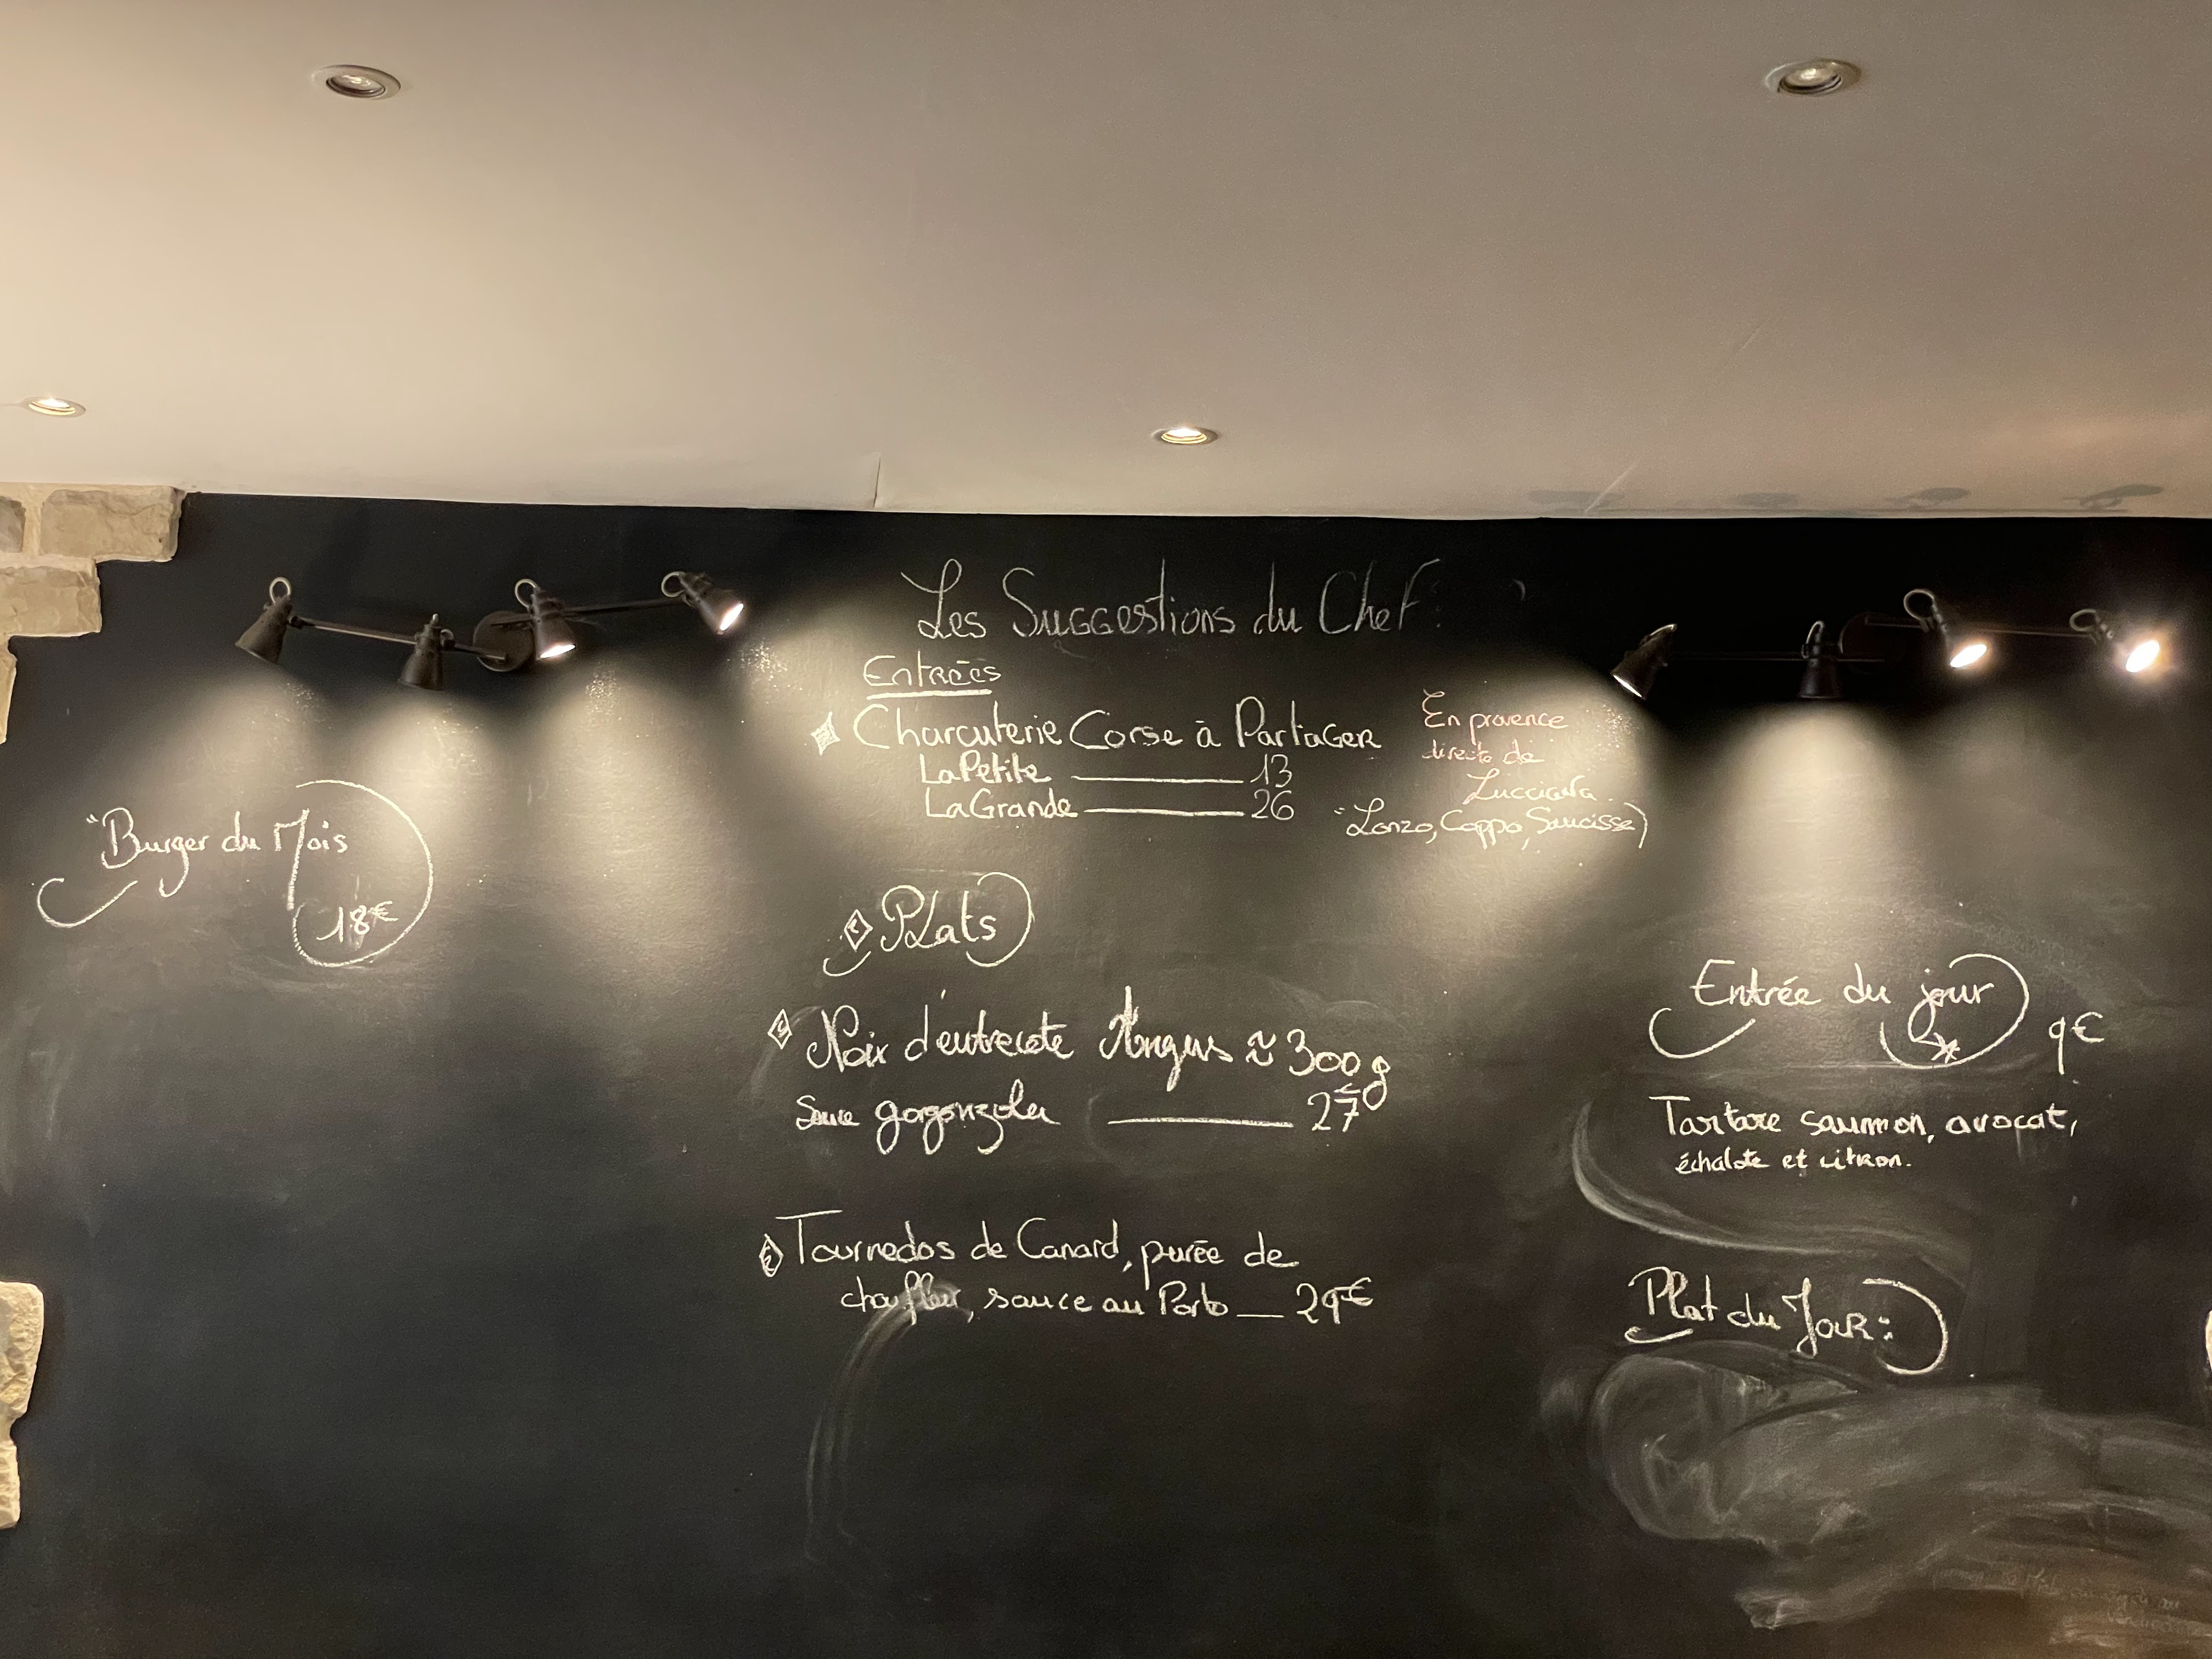 Les Suggestions du Chef :
Entrées
Charcuterie Corse à Partager
La Petite 13
La Grande 26
En provence
directe de
Lucciana.
"Lonzo, Coppa, Saucisse)
"Burger du Mois
18€
Plats
Noix d'entrecote Angus ≈ 300g
Sauce gorgonzola 27€
Tournedos de Canard, purée de
choufleur, sauce au Porto — 29€
Entrée du jour
9€
Tartare saumon, avocat,
échalote et citron.
Plat du Jour :